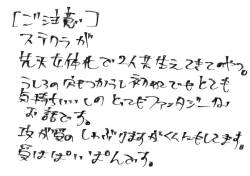 [ご注意]
ステクラが
先天女体化で2人共生えてきてのやつ。
うしろの穴をつかうし初めてでもとても
気持ちいいしの とってもファンタジーな
お話です。
攻が受のしゃぶりますがくんにもします。
受はぱいぱんです。